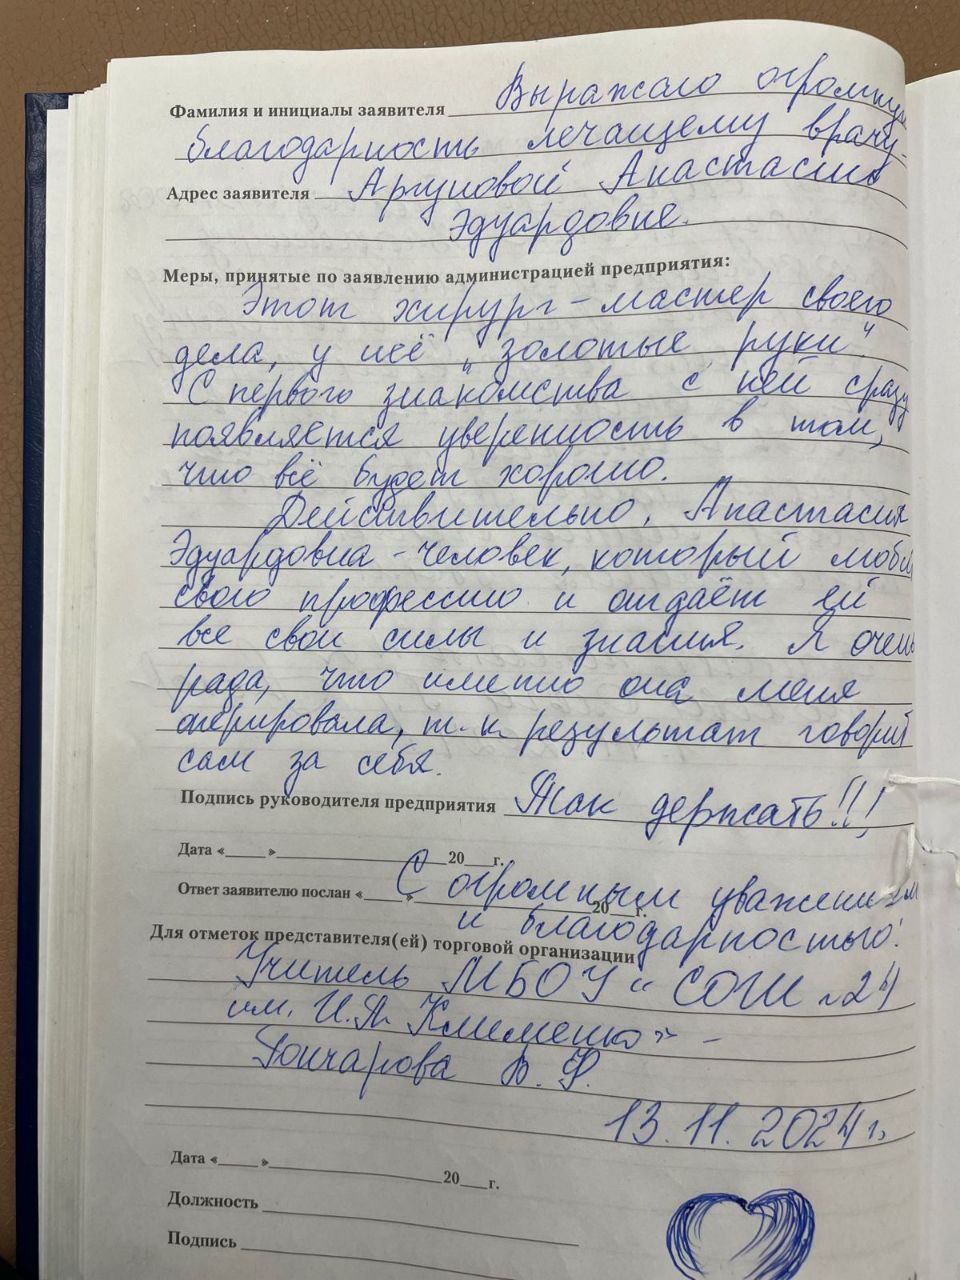 Фамилия и инициалы заявителя Выражаю огромную
благодарность лечащему врачу-
Адрес заявителя Аргуновой Анастасии
Эдуардовне.
Меры, принятые по заявлению администрацией предприятия:
Этот хирург - мастер своего
дела, у неё „золотые руки".
С первого знакомства с ней сразу
появляется уверенность в том,
что всё будет хорошо.
Действительно, Анастасия
Эдуардовна - человек, который любит
свою профессию и отдаёт ей
все свои силы и знания. Я очень
рада, что именно она меня
оперировала, т.к. результат говорит
сам за себя.
Подпись руководителя предприятия Так держать!!!
Дата «___» ___ 20__г.
Ответ заявителю послан «___» ___ 20__г.
С огромным уважением
и благодарностью!
Для отметок представителя(ей) торговой организации
Учитель МБОУ „СОШ №24
им. И.Я. Клименко" -
Гончарова В. Ф.
13.11.2024 г.
Дата «___» ___ 20__г.
Должность
Подпись